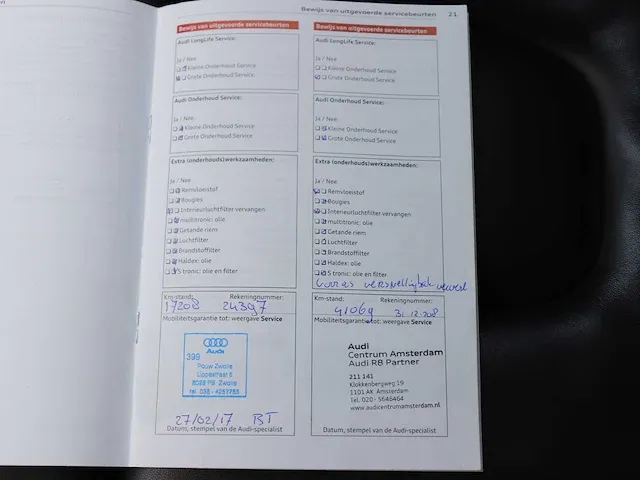 Bewijs van uitgevoerde servicebeurten 21
Bewijs van uitgevoerde servicebeurten
Audi LongLife Service:
Ja / Nee
Kleine Onderhoud Service
Grote Onderhoud Service
Audi Onderhoud Service:
Kleine Onderhoud Service
Grote Onderhoud Service
Extra (onderhouds)werkzaamheden:
Ja / Nee
Remvloeistof
Bougies
Interieurluchtfilter vervangen
multitronic: olie
Getande riem
Luchtfilter
Brandstoffilter
Haldex: olie
S tronic: olie en filter
Km-stand: Rekeningnummer:
17208 24397
Mobiliteitsgarantie tot: weergave Service
Audi
399
Pouw Zwolle
8028 PB Zwolle
27/02/17 BT
Datum, stempel van de Audi-specialist
Bewijs van uitgevoerde servicebeurten
Audi LongLife Service:
Ja / Nee
Kleine Onderhoud Service
Grote Onderhoud Service
Audi Onderhoud Service:
Kleine Onderhoud Service
Grote Onderhoud Service
Extra (onderhouds)werkzaamheden:
Ja / Nee
Remvloeistof
Bougies
Interieurluchtfilter vervangen
multitronic: olie
Getande riem
Luchtfilter
Brandstoffilter
Haldex: olie
S tronic: olie en filter
Km-stand: Rekeningnummer:
41069 31.12.2018
Mobiliteitsgarantie tot: weergave Service
Audi
Centrum Amsterdam
Audi R8 Partner
211 141
Klokkenbergweg 19
1101 AK Amsterdam
Tel. 020 - 5646464
www.audicentrumamsterdam.nl
Datum, stempel van de Audi-specialist